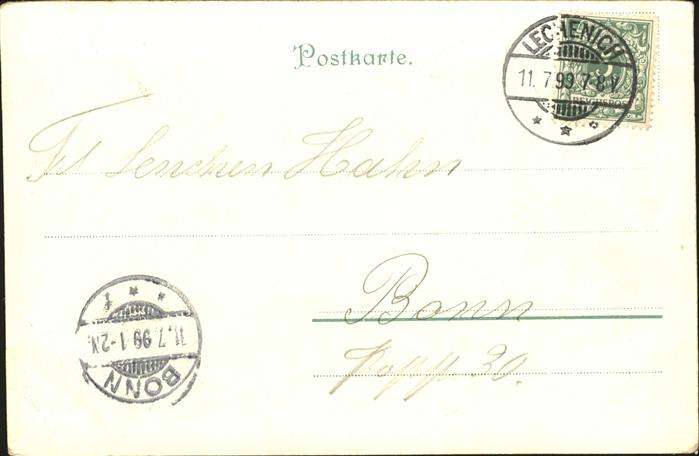 Postkarte.
LECHENICH
11. 7 99 7-8 V
REICHSPOST
Frl Lenchen Hahn
Bonn
30.
11. 7. 99 1-2 N.
BONN